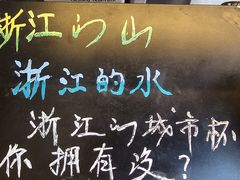 浙江的山
浙江的水
浙江的城市杯
你拥有没？